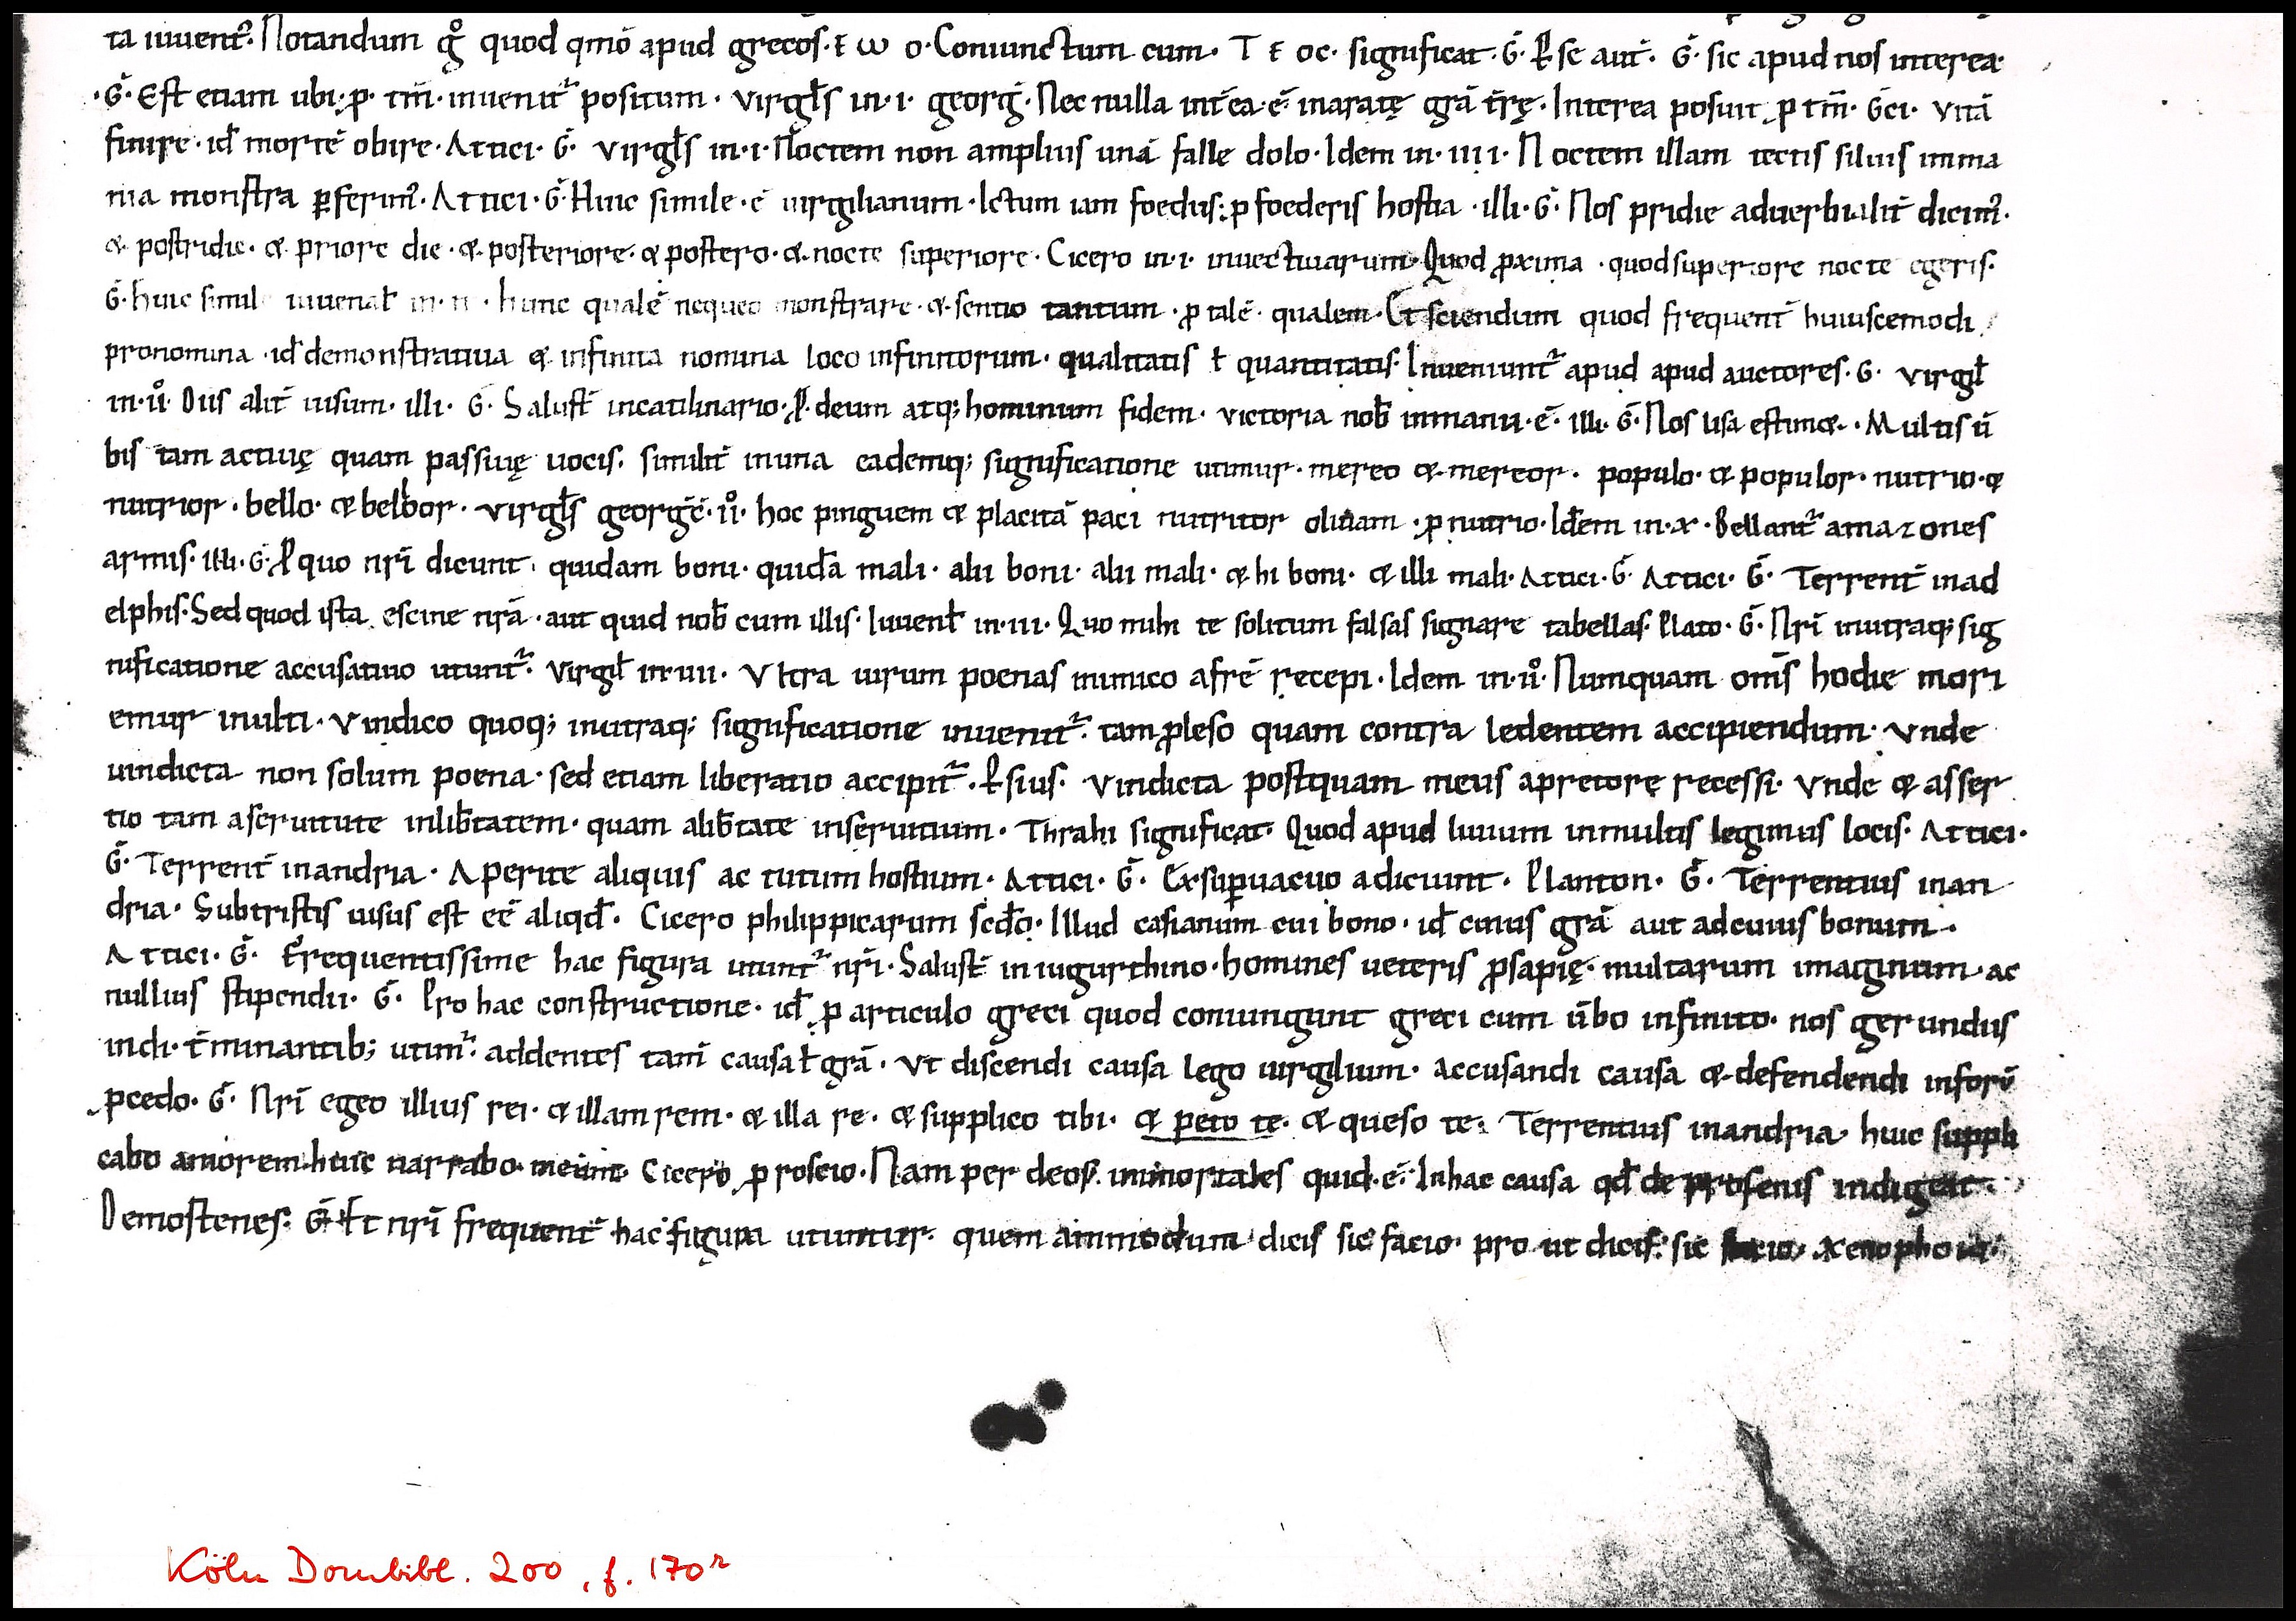 ta iuuent᷑. Notandum gͦ quod qmo᷑ apud grecos· ε ω o· Coniunctum cum· T ε oc· significat· G̅· P̶se aut̅· G̅· sic apud nos interea·
·G̅· Est etiam ubi· p· tm̅· inuenit᷑ positum· virgl̅s in· i· georg̅· Nec nulla int̅ea· e̅· inaratę gra̅ t̅rę· Interea posuit p tm̅· G̅ci· vita̅
finire· id̅ morte̅ obire· Attici· G̅· virgl̅s in· i· Noctem non amplius una̅ falle dolo· Idem in· iiii· Noctem illam tectis siluis imma
nia monstra ꝑferim᷑· Attici· G̅· Huic simile· e̅ uirgilianum· Ictum iam foedus: p foederis hostia· illi· G̅· Nos pridie aduerbialit̅ dicim᷑·
& postridie· & priore die· & posteriore· & postero· & nocte superiore· Cicero in· i· inuectiuarum· Quod ꝓxima· quod superiore nocte egeris·
G̅· huic simil iuuenal̅ in· ii· hunc quale̅ nequeo monstrare· & sentio tantum· ꝓ tale̅· qualem· Et sciendum quod frequent̅ huiuscemodi
pronomina· id̅ demonstratiua & infinita nomina loco infinitorum· qualitatis ł quantitatis· Inueniunt᷑ apud apud auctores· G· virgl̅
in· uͦ· Diis alit̅ uisum· illi· G· Salust̅ incatilinario· P̶· deum atq; hominum fidem· victoria nob̅ inmanu· e̅· illi· G̅· Nos usa estim&· Multis u̅
bis tam actiuę quam passiuę uocis· similit̅ inuna eademq; significatione utimur· mereo & mereor· populo· & populor· nutrio· &
nutrior· bello· & bellor· virgl̅s georgc̅· uͦ· hoc pinguem & placita̅ paci nutritor oliuam· ꝓ nutrio· Idem in· x· Bellant᷑ amazones
armis· illi· G· P̶ quo nr̅i dicunt· quidam boni· quida̅ mali· alii boni· alii mali· & hi boni· & illi mali· Attici· G̅· Attici· G̅· Terrent̅ inad
elphis· Sed quod ista escine nr̅a· aut quid nob̅ cum illis· Iuuenl̅ in· iii· Quo mihi te solitum falsas signare tabellas· Plato· G̅· Nr̅i inutraq; sig
nificatione accusatiuo utunt᷑· Virgl̅ in· uii· Vltra uirum poenas inimico afre̅ recepi· Idem in· uͦ· Numquam om̅s hodie mori
emur inulti· Vindico quoq; inutraq; significatione inuenit᷑· tam ꝓleso quam contra ledentem accipiendum· Vnde
uindicta non solum poena· sed etiam liberatio accipit᷑· P̶sius· Vindicta postquam meus apretorę recessi· Vnde & asser
tio tam aseruitute inlib̅tatem· quam alib̅tate inseruitium· Thrahi significat· Quod apud liuium inmultis legimus locis· Attici·
G̅· Terrent̅ inandria· Aperite aliquis ac tutum hostium· Attici· G̅· Exsuꝑuacuo adiciunt· Planton· G̅· Terrentius inan
dria· Subtristis uisus est ee̅ aliqd̅· Cicero philippicarum scd̅o· Illud casianum cui bono· id̅ cuius gra̅ aut adcuius bonum·
Attici· G̅· Frequentissime hac figura utunt᷑ nr̅i· Salust̅ in iugurthino· homines ueteris ꝓsapię· multarum imaginum· ac
nullius stipendii· G̅· Pro hac constructione· id̅ p articulo greci quod coniungunt greci cum u̅bo infinito· nos gerundus
indi· t̅minantib; utim᷑· addentes tam̅ causa ł gra̅· Vt discendi causa lego uirgilium· accusandi causa & defendendi inforu̅
pcedo· G̅· Nr̅i egeo illius rei· & illam rem· & illa re· & supplico tibi· & peto te· & queso te· Terrentius inandria· huic suppli
cabo amorem huic narrabo meum· Cicero p roscio· Nam per deos immortales quid· e̅· Inhac causa qd̅ de prosenis indigeat·
Demostenes· G̅· Et nr̅i frequent̅ hac figura utuntur· quem ammodum dicis sic facio· pro ut dicis: sic facio·
Köln Dombibl. 200, f. 170ʳ